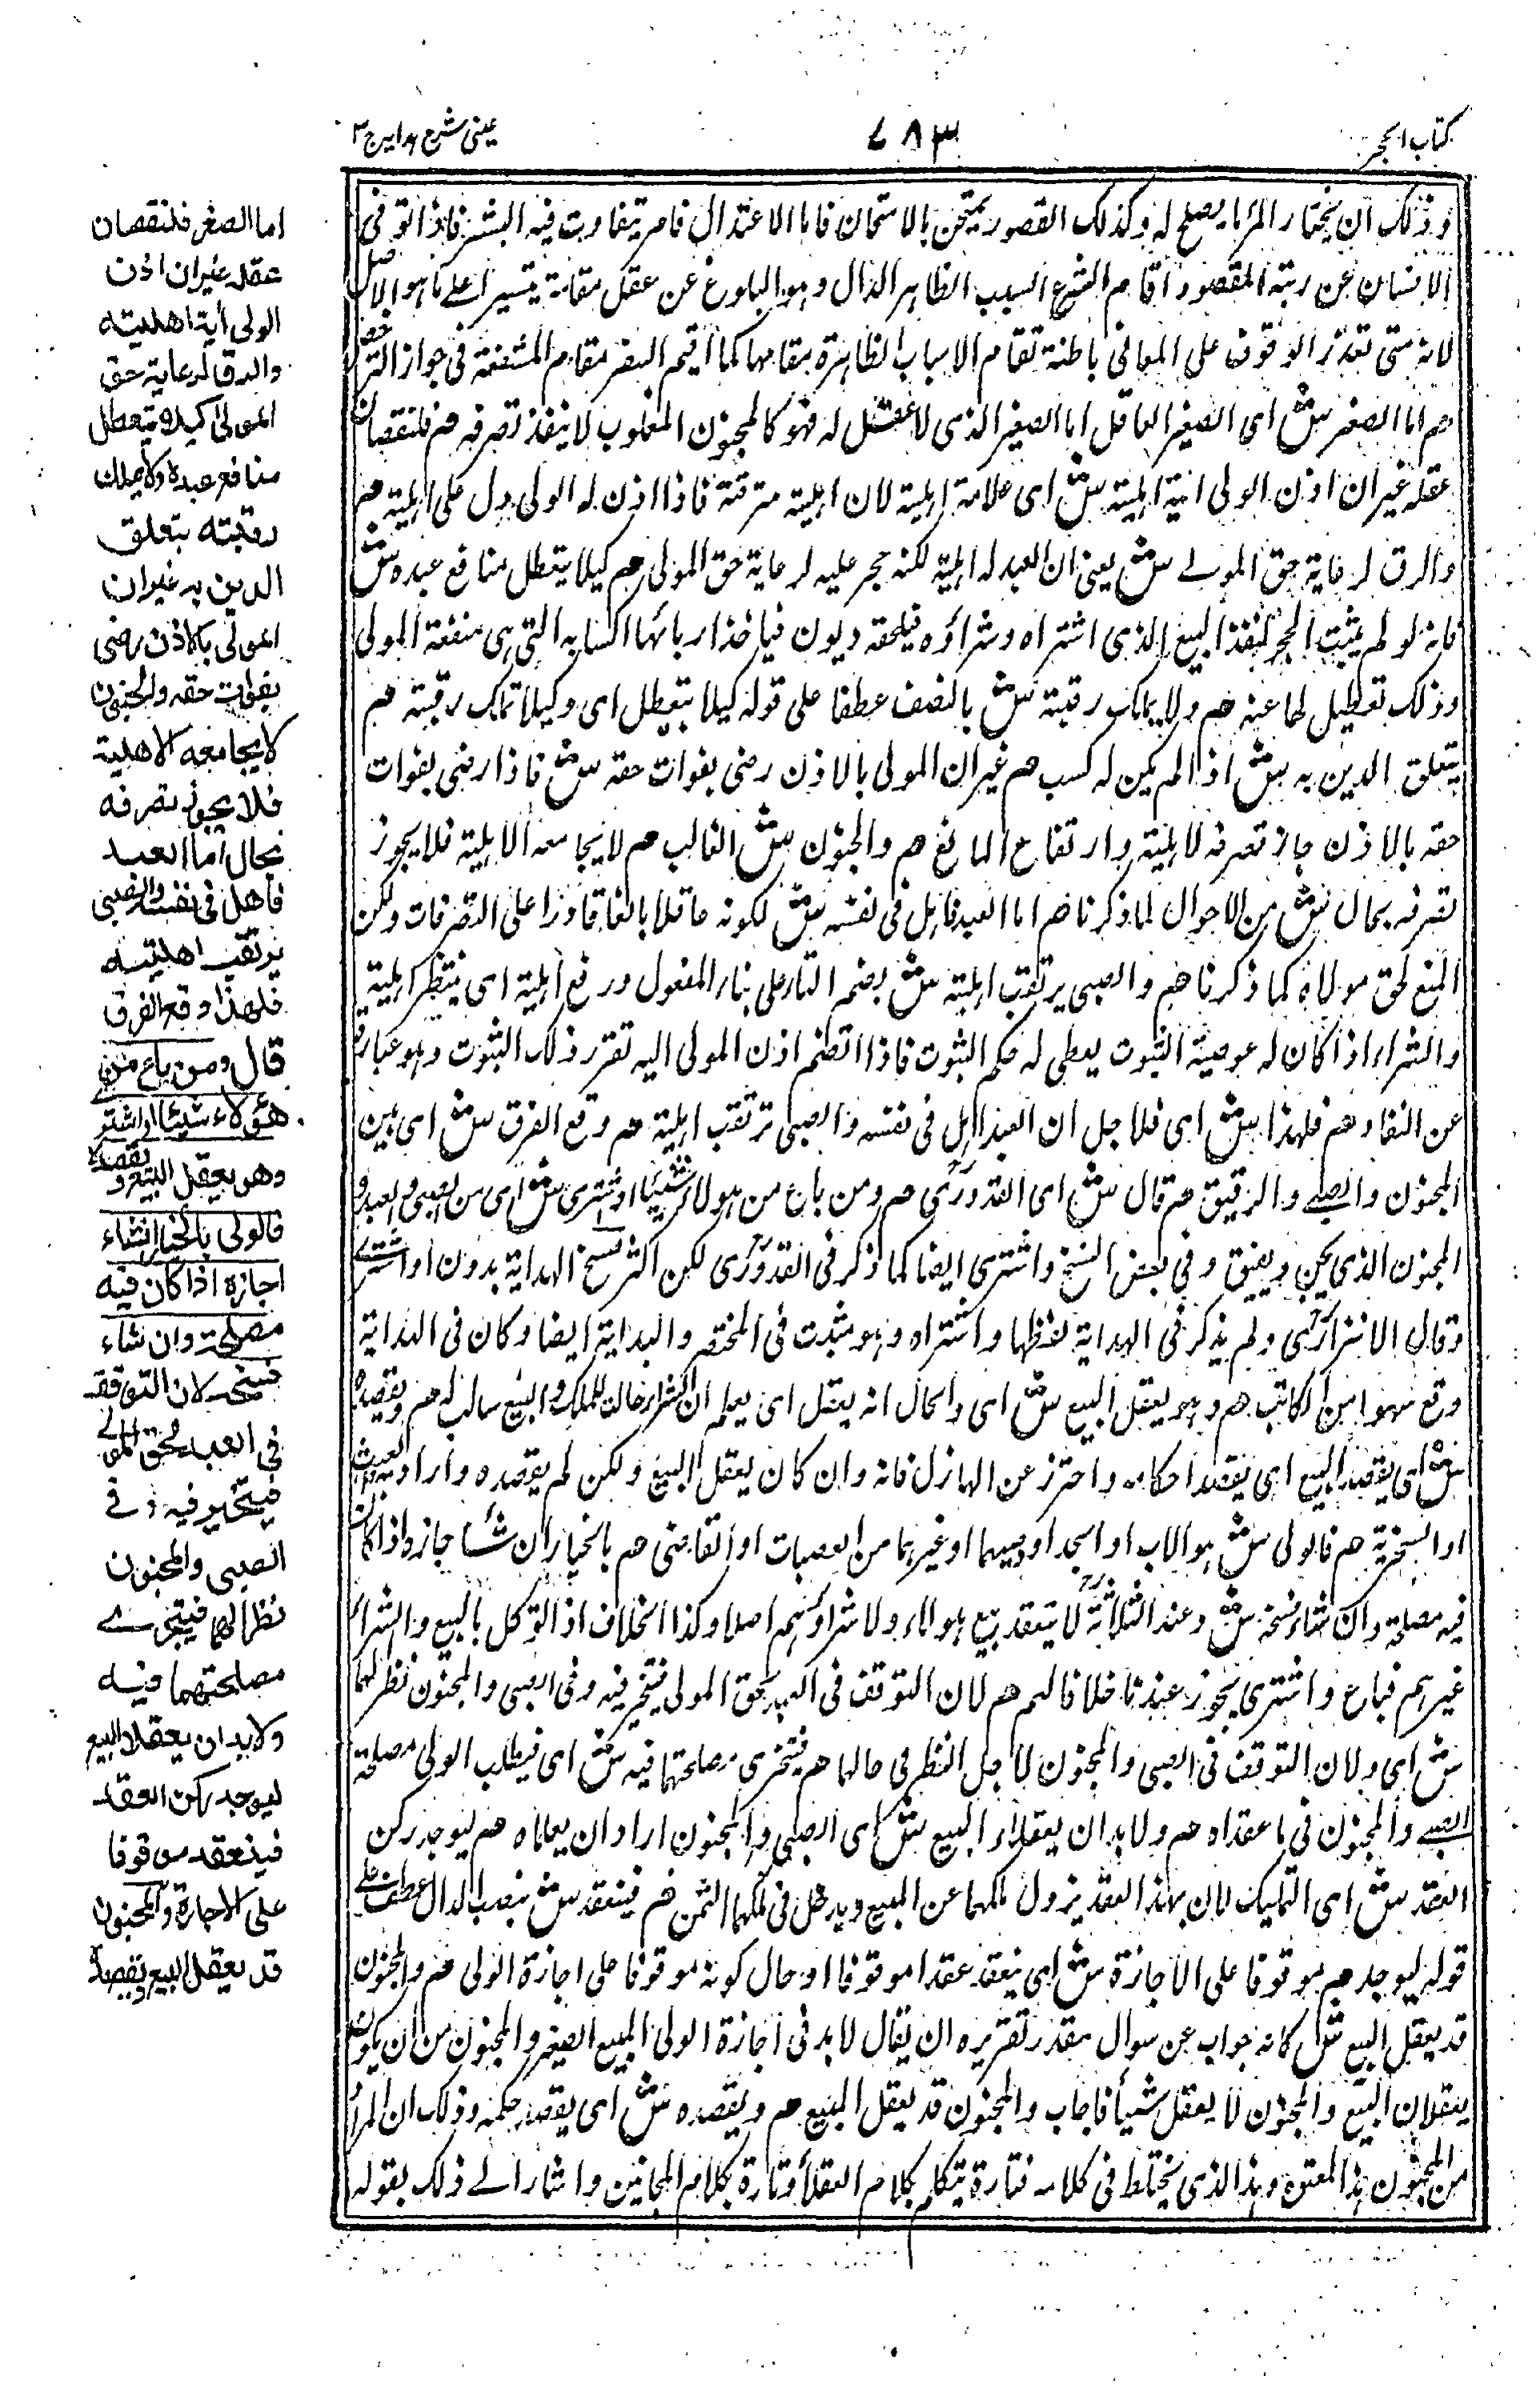 كتاب الحجر
٧٨٣
عینی شرح هدایہ ج ٣
وذلك ان يختار المرأ ما يصلح له وكذلك القصور يمتحن بالامتحان فاما الاعتدال فامر يتفاوت فيه البشر فاذا توفى
الانسان عن رتبة المقصود اقام الشرع السبب الظاهر الدال وهو البلوغ عن عقل مقامه تيسيرا على ما هو الاصل
لانه متى تعذر الوقوف على المعانى باطنة تقام الاسباب الظاهرة مقامها كما اقيم السفر مقام المشقة فى جواز الترخص
م اما الصغر ش اى الصغير العاقل اما الصغير الذى لا عقل له فهو كالمجنون المغلوب لا ينفذ تصرفه م فلنقصان
عقله غير ان اذن الولى اية اهليته ش اى علامة اهلية لان اهليته مترقبة فاذا اذن له الولى دل على اهليته م
والرق لرعاية حق المولى ش يعنى ان العبد له اهلية لكنه حجر عليه لرعاية حق المولى م كيلا يتعطل منافع عبده ش
فانه لو لم يثبت الحجر لنفذ البيع الذى اشتراه وشراؤه فيلحقه ديون فياخذ اربابها اكسابه التى هى منفعة المولى
وذلك تعطيل لها عنه م ولا يملك رقبته ش بالنصب عطفا على قوله كيلا يتعطل اى وكيلا تملك رقبته م
بتعلق الدين به ش اذا لم يكن له كسب م غير ان المولى بالاذن رضى بفوات حقه ش فاذا رضى بفوات
حقه بالاذن جاز تصرفه لاهليته وارتفاع المانع م والجنون ش الغالب م لا يجامعه الاهلية فلا يجوز
تصرفه بحال ش من الاحوال لما ذكرنا م اما العبد فاهل فى نفسه ش لكونه عاقلا بالغا قادرا على التصرفات ولكن
المنع لحق مولاه كما ذكرنا م والصبى يرتقب اهليته ش بضم التاء على بناء المفعول ورفع اهليته اى ينتظر اهليته
والشراء اذا كان له عرضية الثبوت يعطى له حكم الثبوت فاذا انضم اذن المولى اليه تقرر ذلك الثبوت وهو عبارة
عن النفاذ م فلهذا ش اى فلاجل ان العبد اهل فى نفسه والصبى ترتقب اهليته م وقع الفرق ش اى بين
المجنون والصبى والرقيق م قال ش اى القدورى م ومن باع من هولاء شيئا او اشترى ش اى من الصبى والعبد و
المجنون الذى يجن ويفيق وفى بعض النسخ واشترى ايضا كما ذكر فى القدورى لكن اكثر نسخ الهداية بدون او اشترى
وقال الاترازى ولم يذكر فى الهداية لفظها واشتراه وهو مثبت فى المختصر والبداية ايضا وكان فى الهداية
وقع سهوا من الكاتب م وهو يعقل البيع ش اى والحال انه يعقل اى يعلم ان الشراء جالب للملك والبيع سالب له م ويقصده
ش اى يقصد البيع اى يقصد احكامه واحترز عن الهازل فانه وان كان يعقل البيع ولكن لم يقصده واراد به العبث
او السخرية م فالولى ش هو الاب او الجد او وصيهما او غيرهما من العصبات او القاضى م بالخيار ان شاء اجازه اذا كان
فيه مصلحة وان شاء فسخه ش وعند الثلاثة لا ينعقد بيع هولاء ولا شراؤهم اصلا وكذا الخلاف اذ التوكل بالبيع والشراء
غيرهم فباع واشترى يجوز عندنا خلافا لهم م لان التوقف فى العبد لحق المولى فيتخير فيه وفى الصبى والمجنون نظر لهما
ش اى ولان التوقف فى الصبى والمجنون لاجل النظر فى حالهما م فيتحرى مصلحتهما فيه ش اى فيطلب الولى مصلحة
الصبى والمجنون فى ما عقداه م ولا بد ان يعقلا البيع ش اى الصبى والمجنون اراد ان يعلماه م ليوجد ركن
العقد ش اى التمليك لان بهذا العقد يزول ملكهما عن المبيع ويدخل فى ملكهما الثمن م فينعقد ش بنصب الدال عطف على
قوله ليوجد م موقوفا على الاجازة ش اى ينعقد عقدا موقوفا او حال كونه موقوفا على اجازة الولى م والمجنون
قد يعقل البيع ش كانه جواب عن سوال مقدر تقريره ان يقال لا بد فى اجازة الولى المبيع الصغير والمجنون من ان يكونا
يعقلان البيع والمجنون لا يعقل شيأ فاجاب والمجنون قد يعقل البيع م ويقصده ش اى يقصد حكمه وذلك ان المراد
من المجنون هذا المعتوه وهذا الذى يختلط فى كلامه فتارة يتكلم بكلام العقلاء وتارة بكلام المجانين واشار الى ذلك بقوله
اما الصغر فلنقصان
عقله غير ان اذن
الولى اية اهليته
والرق لرعاية حق
المولى كيلا يتعطل
منافع عبده ولا يملك
رقبته بتعلق
الدين به غير ان
المولى بالاذن رضى
بفوات حقه والجنون
لا يجامعه الاهلية
فلا يجوز تصرفه
بحال اما العبد
فاهل فى نفسه والصبى
يرتقب اهليته
فلهذا وقع الفرق
قال ومن باع من
هؤلاء شيئا او اشترى
وهو يعقل البيع ويقصده
فالولى بالخيار ان شاء
اجازه اذا كان فيه
مصلحة وان شاء
فسخه لان التوقف
فى العبد لحق المولى
فيتخير فيه وفى
الصبى والمجنون
نظرا لهما فيتحرى
مصلحتهما فيه
ولا بد ان يعقلا البيع
ليوجد ركن العقد
فينعقد موقوفا
على الاجازة والمجنون
قد يعقل البيع ويقصده